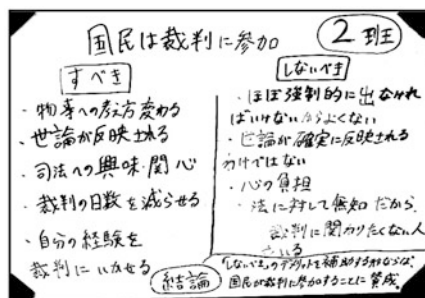 国民は裁判に参加
2班
すべき
・物事への考え方変わる
・世論が反映される
・司法への興味・関心
・裁判の日数を減らせる
・自分の経験を
裁判にいかせる
しないべき
・ほぼ強制的に出なければ
ばいけないからよくない
・世論が確実に反映される
わけではない
・心の負担
・法に対して無知だから、
裁判に関わりたくない人
もいる
結論
「しないべき」のデメリットを補助する形ならば、
国民が裁判に参加することに賛成。